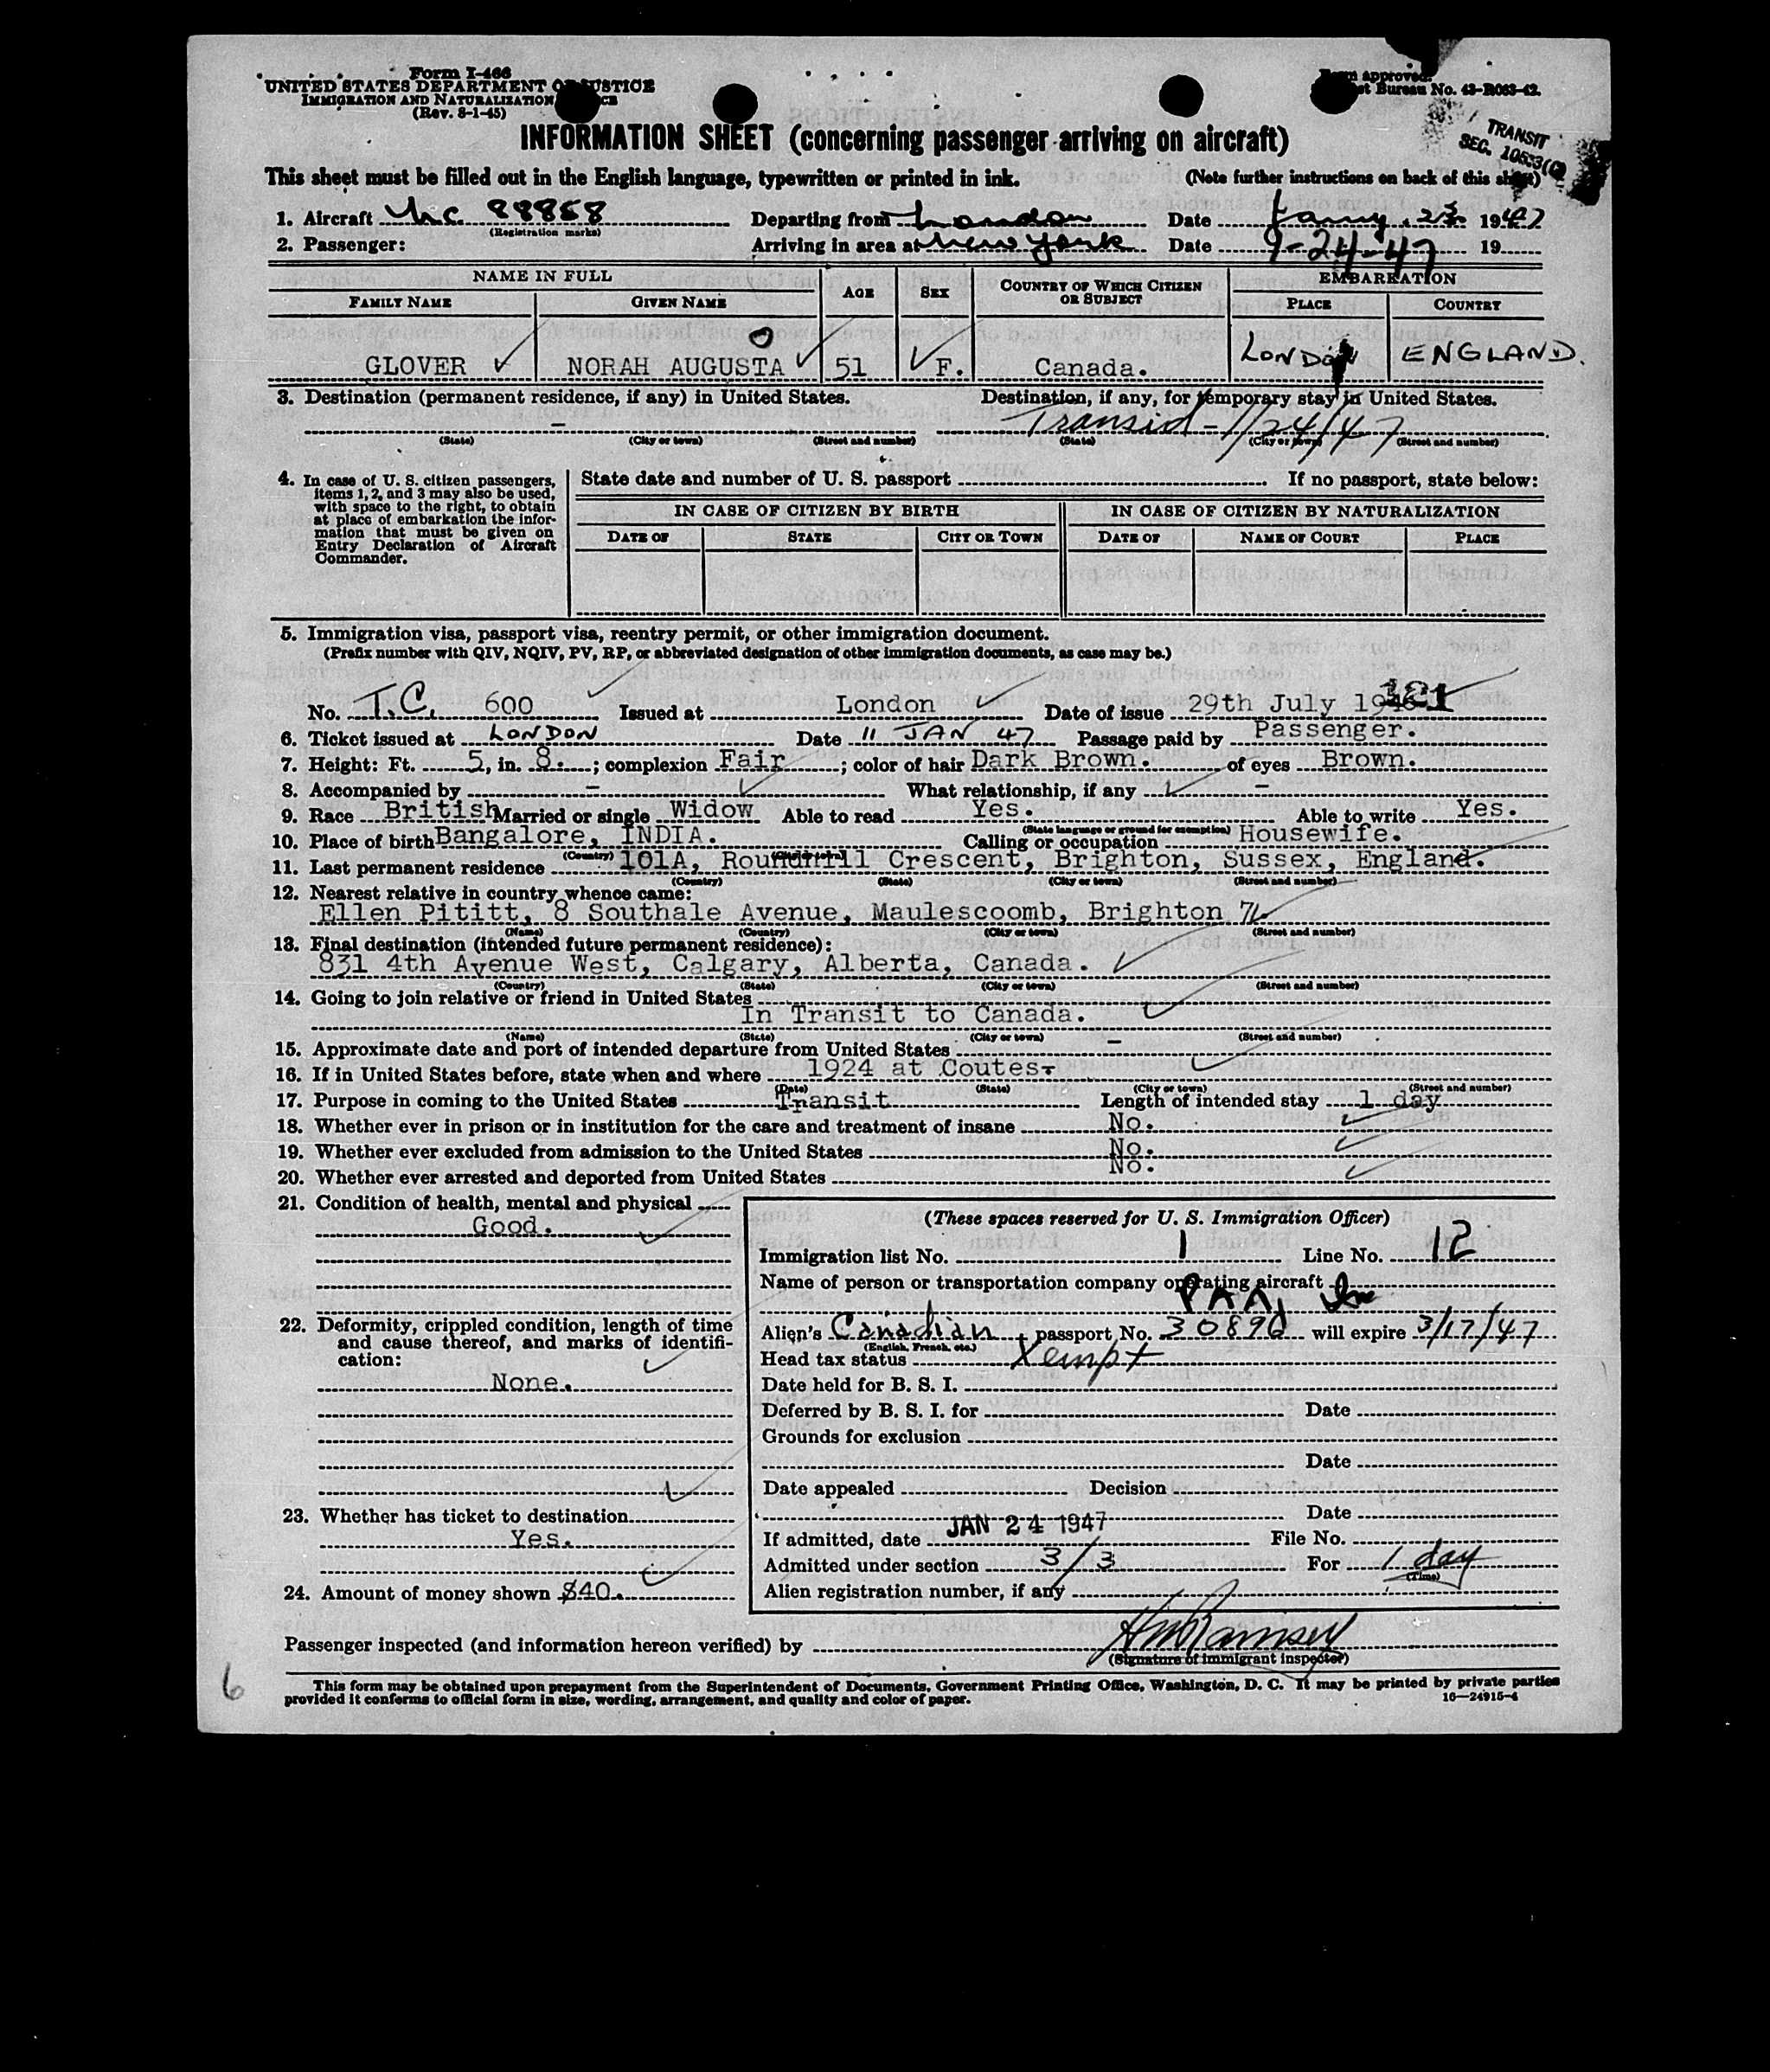 Form I-466
UNITED STATES DEPARTMENT OF JUSTICE
IMMIGRATION AND NATURALIZATION
(Rev. 8-1-45)
Form approved.
Bureau No. 43-R063-42.
TRANSIT
SEC. 10533
INFORMATION SHEET (concerning passenger arriving on aircraft)
This sheet must be filled out in the English language, typewritten or printed in ink. (Note further instructions on back of this sheet)
1. Aircraft N.C. 88858 Departing from London Date 23 1947
(Registration marks)
2. Passenger: Arriving in area at New York Date 9-24-47 19
NAME IN FULL AGE SEX COUNTRY OF WHICH CITIZEN OR SUBJECT EMBARKATION
FAMILY NAME GIVEN NAME PLACE COUNTRY
GLOVER NORAH AUGUSTA 51 F. Canada. LONDON ENGLAND.
3. Destination (permanent residence, if any) in United States. Destination, if any, for temporary stay in United States.
– Transit - 1/24/47
(State) (City or town) (Street and number) (State) (City or town) (Street and number)
4. In case of U. S. citizen passengers, items 1, 2, and 3 may also be used, with space to the right, to obtain at place of embarkation the information that must be given on Entry Declaration of Aircraft Commander.
State date and number of U. S. passport If no passport, state below:
IN CASE OF CITIZEN BY BIRTH IN CASE OF CITIZEN BY NATURALIZATION
DATE OF STATE CITY OR TOWN DATE OF NAME OF COURT PLACE
5. Immigration visa, passport visa, reentry permit, or other immigration document.
(Prefix number with QIV, NQIV, PV, RP, or abbreviated designation of other immigration documents, as case may be.)
No. T.C. 600 Issued at London Date of issue 29th July 1946
6. Ticket issued at LONDON Date 11 JAN 47 Passage paid by Passenger.
7. Height: Ft. 5, in. 8. ; complexion Fair ; color of hair Dark Brown. of eyes Brown.
8. Accompanied by – What relationship, if any –
9. Race British Married or single Widow Able to read Yes. Able to write Yes.
(State language or ground for exemption)
10. Place of birth Bangalore, INDIA. Calling or occupation Housewife.
(Country) (City or town)
11. Last permanent residence 101A, Roundhill Crescent, Brighton, Sussex, England.
(Country) (State) (City or town) (Street and number)
12. Nearest relative in country whence came:
Ellen Pititt, 8 Southale Avenue, Maulescoomb, Brighton 7
(Name) (Country) (City or town) (Street and number)
13. Final destination (intended future permanent residence):
831 4th Avenue West, Calgary, Alberta, Canada.
(Country) (State) (City or town) (Street and number)
14. Going to join relative or friend in United States
In Transit to Canada.
(Name) (State) (City or town) (Street and number)
15. Approximate date and port of intended departure from United States –
16. If in United States before, state when and where 1924 at Coutes-
(Date) (State) (City or town) (Street and number)
17. Purpose in coming to the United States Transit Length of intended stay 1 day
18. Whether ever in prison or in institution for the care and treatment of insane No.
19. Whether ever excluded from admission to the United States No.
20. Whether ever arrested and deported from United States No.
21. Condition of health, mental and physical
Good.
22. Deformity, crippled condition, length of time and cause thereof, and marks of identification:
None.
23. Whether has ticket to destination
Yes.
24. Amount of money shown $40.
(These spaces reserved for U. S. Immigration Officer)
Immigration list No. 1 Line No. 12
Name of person or transportation company operating aircraft
PAA, Inc
Alien's Canadian passport No. 30896 will expire 3/17/47
(English, French, etc.)
Head tax status Xempt
Date held for B. S. I.
Deferred by B. S. I. for Date
Grounds for exclusion
Date
Date appealed Decision
Date
If admitted, date JAN 24 1947 File No.
Admitted under section 3/3 For 1 day
(Time)
Alien registration number, if any
Passenger inspected (and information hereon verified) by Ramsey
(Signature of immigrant inspector)
6
This form may be obtained upon prepayment from the Superintendent of Documents, Government Printing Office, Washington, D. C. It may be printed by private parties
provided it conforms to official form in size, wording, arrangement, and quality and color of paper. 16—24915-4